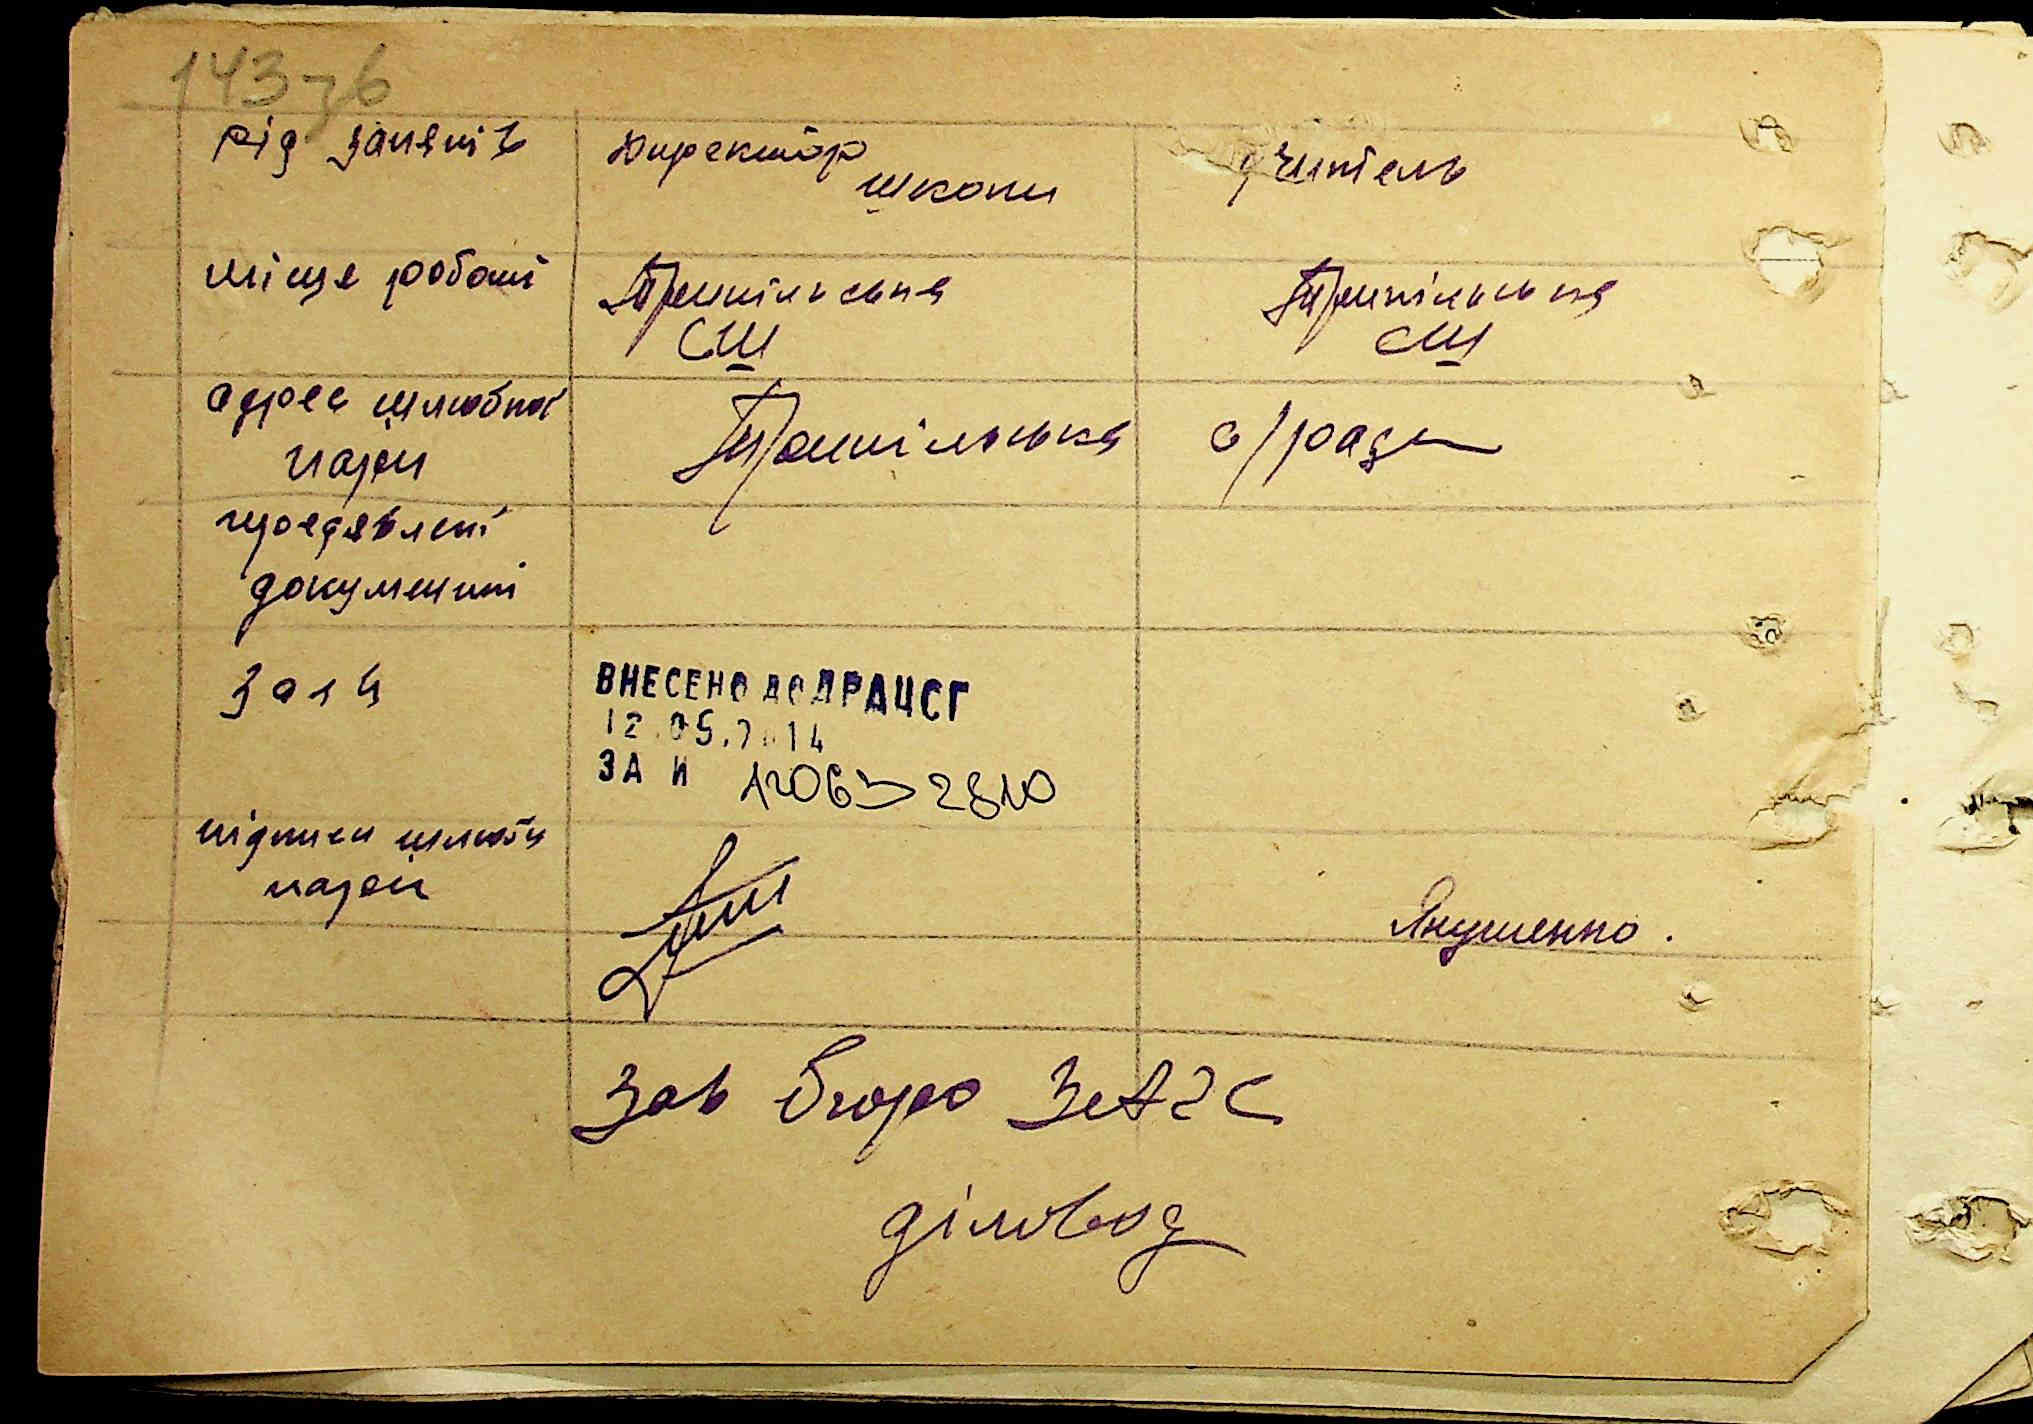 143зв
рід занятів
директор
школи
учитель
місце роботи
Трипільська
СШ
Трипільська
СШ
адрес шлюбної
пари
Трипільська с/рада
предявлені
документи
ВНЕСЕНО ДО ДРАЦСГ
12.05.2014
ЗА И
підписи шлюбн
пари
Янушенко.
Зав бюро ЗАГС
діловод